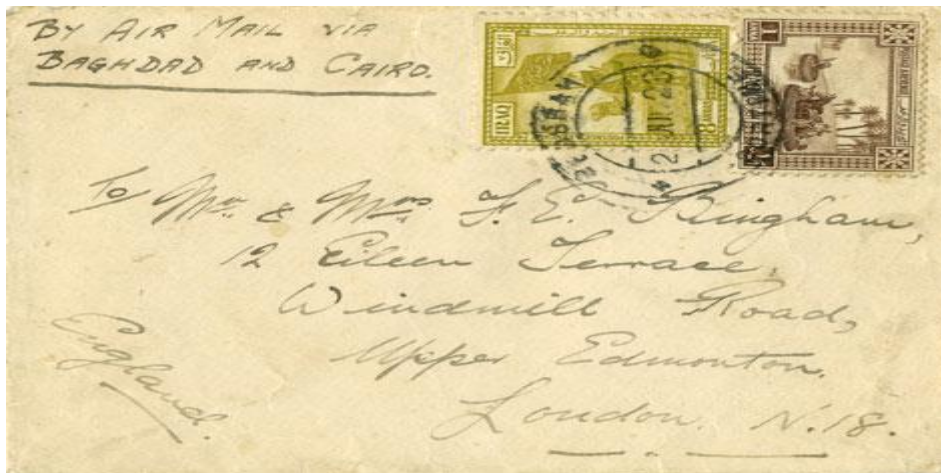 BY AIR MAIL VIA
BAGHDAD AND CAIRO.
IRAQ
8 ANNAS
1
To/ Mr. & Mrs. F. E. Bingham,
12 Eileen Terrace,
Windmill Road,
Upper Edmonton.
London. N.18.
England.